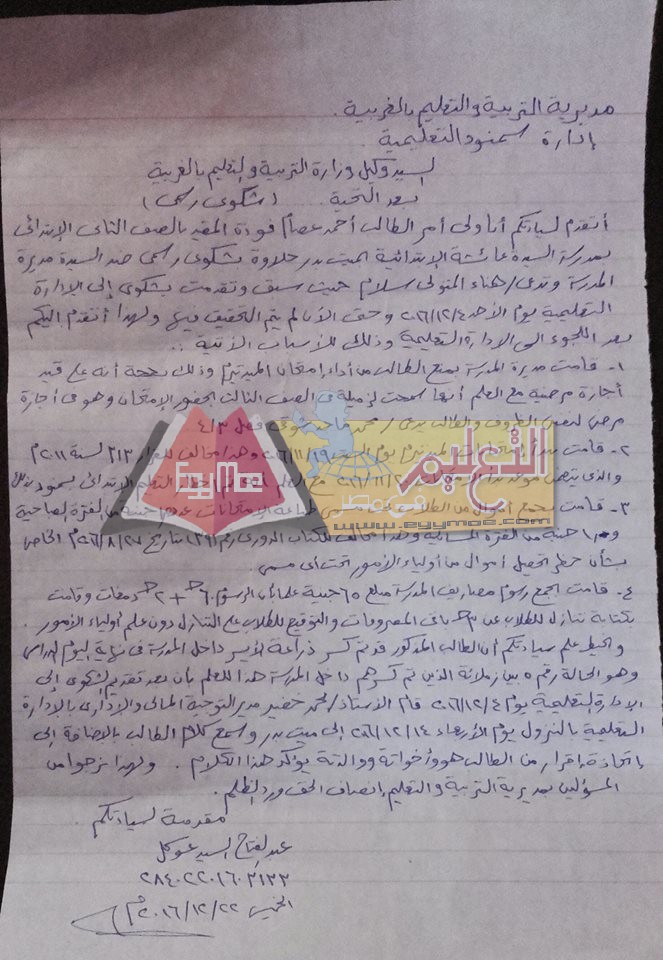 مديرية التربية والتعليم بالغربية.
إدارة سمنود التعليمية
السيد وكيل وزارة التربية والتعليم بالغربية
بعد التحية ... (شكوى رسمى)
أتقدم لسيادتكم أنا ولى أمر الطالب أحمد عصام فودة المقيد بالصف الثانى الإبتدائى
بمدرسة السيدة عائشة الإبتدائية بميت بدر حلاوة بشكوى رسمى ضد السيدة مديرة
المدرسة وتدعى/ هناء المتولى سلام حيث سبق وتقدمت بشكوى إلى الإدارة
التعليمية يوم الأحد ٢٠١٦/١٢/٤ وحتى الأن لم يتم التحقيق فيها ولهذا أتقدم اليكم
بعد اللجوء الى الإدارة التعليمية وذلك للأسباب الأتية ..
١- قامت مديرة المدرسة بمنع الطالب من أداء إمتحان الميدتيرم وذلك بحجة أنه على قيد
أجازة مرضية مع العلم أنها سمحت لزميلة فى الصف الثالث بحضور الإمتحان وهو فى أجازة
مرض لنفس الظروف والطالب يدعى/ محمد ماجد شوقى فصل ٤/٣
٢- قامت ببدأ إمتحانات الميدتيرم يوم ٢٠١٦/١١/١٩ وهذا مخالف للقرار ٣١٣ لسنة ٢٠١١م
والذى يتضمن موعد بدأ مع العلم التعليم الإبتدائى بسمنود بذلك
٣- قامت بجمع أموال من الطلاب تحت مسمى طباعة الإمتحانات جنية من الفترة الصباحية
جنية من الفترة المسائية وهذا مخالف للكتاب الدورى رقم (٢٩) بتاريخ ٢٠١٦/٨/٢٨ الخاص
بشأن حظر تحصيل أموال من أولياء الأمور تحت أى مسمى.
٤- قامت بجمع رسوم مصاريف المدرسة مبلغ ٦٥ جنية علماً بأن الرسوم ٦٠ + ٢ دمغات وقامت
بكتابة تنازل للطلاب عن باقى المصروفات والتوقيع للطلاب على التنازل دون علم أولياء الأمور.
وأحيط علم سيادتكم أن الطالب المذكور قد تم كسر ذراعة الأيسر داخل المدرسة فى نهاية اليوم الدراسى
وهو الحالة رقم ٥ بين زملائة الذين تم كسرهم داخل المدرسة هذا للعلم بأن بعد تقديم الشكوى إلى
الإدارة التعليمية يوم ٢٠١٦/١٢/٤ قام الأستاذ/ محمد خضير مدير التوجية المالى والإدارى بالإدارة
التعليمية بالنزول يوم الأربعاء ٢٠١٦/١٢/١٤ إلى ميت بدر وسمع كلام الطالب بالإضافة إلى
إتخاذة إقرار من الطالب هو وأخواتة ووالدتة يؤكد هذا الكلام. ولهذا نرجوا من
المسؤلين بمديرية التربية والتعليم إنصاف الحق ورد الظلم.
مقدمة لسيادتكم
عبد الفتاح السيد عوكل
الخميس ٢٠١٦/١٢/٢٢م
التعليم
فى مصر
EgyMoe
www.egymoe.com